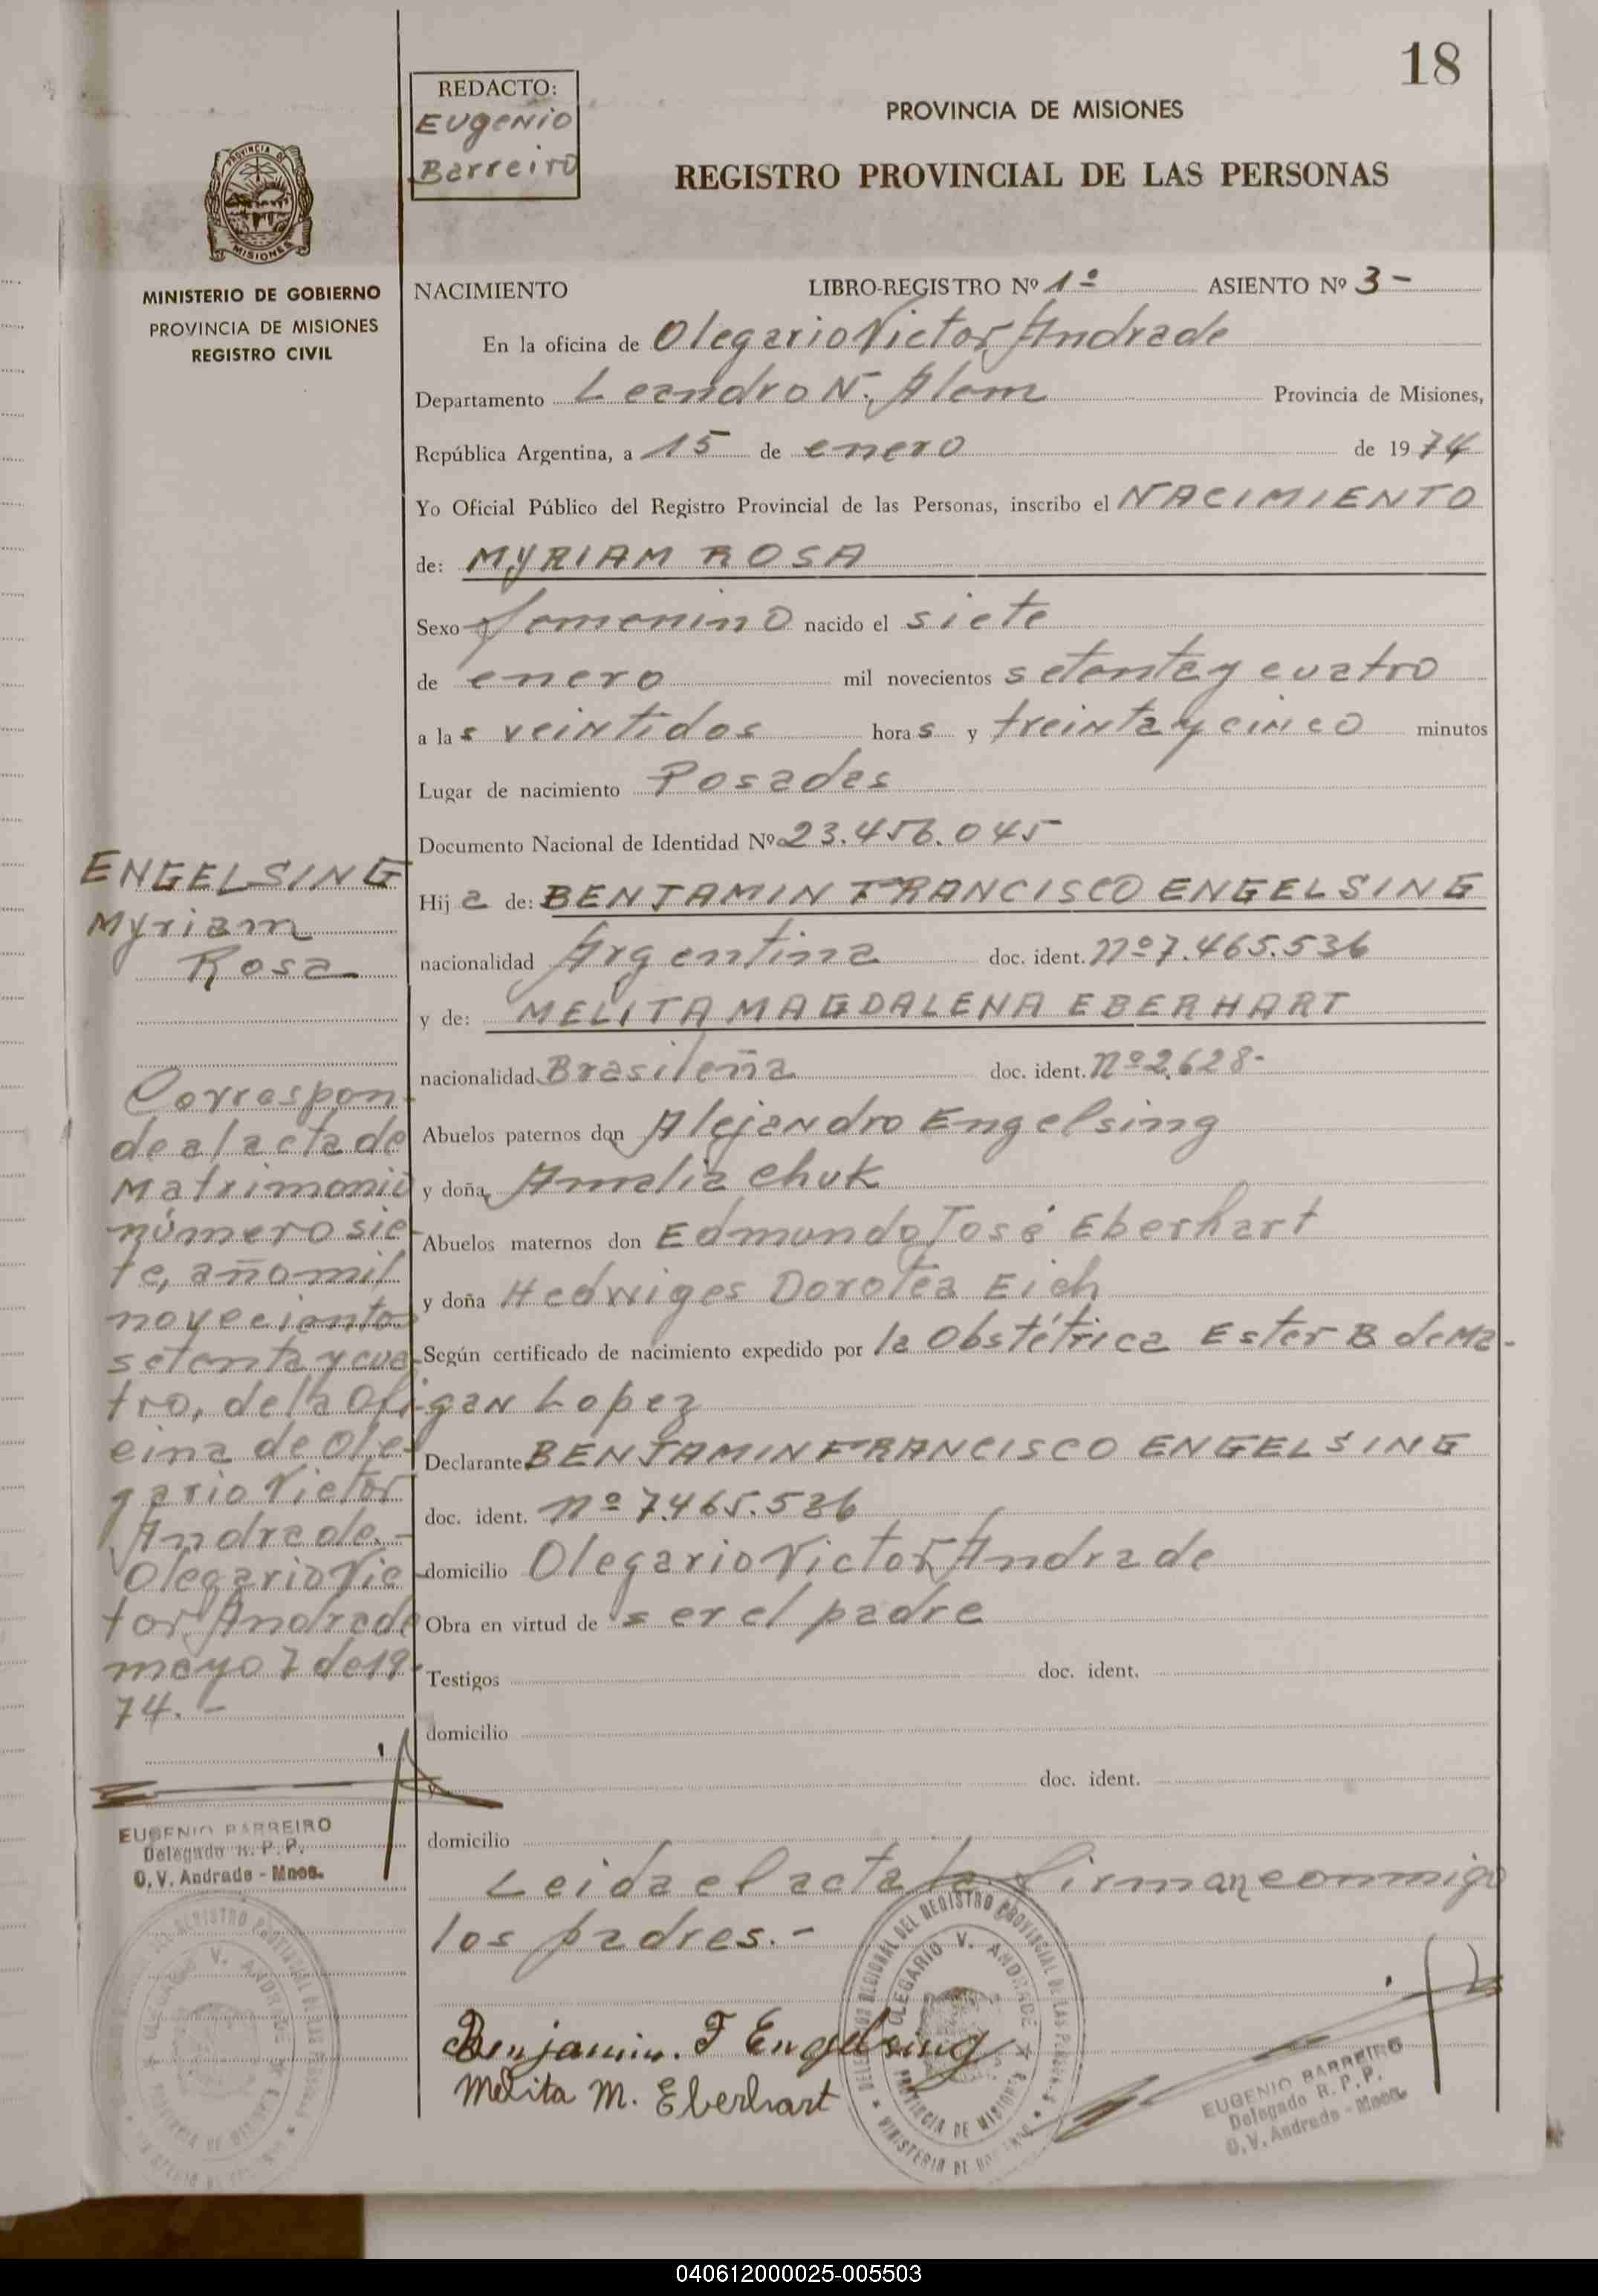 18
REDACTO:
Eugenio
Barreiro
PROVINCIA DE MISIONES
REGISTRO PROVINCIAL DE LAS PERSONAS
PROVINCIA DE
MISIONES
MINISTERIO DE GOBIERNO
PROVINCIA DE MISIONES
REGISTRO CIVIL
NACIMIENTO LIBRO-REGISTRO Nº 1º ASIENTO Nº 3-
En la oficina de Olegario Victor Andrade
Departamento Leandro N. Alem Provincia de Misiones,
República Argentina, a 15 de enero de 1974
Yo Oficial Público del Registro Provincial de las Personas, inscribo el NACIMIENTO
de: MYRIAM ROSA
Sexo femenino nacido el siete
de enero mil novecientos setenta y cuatro
a las veintidos horas y treinta y cinco minutos
Lugar de nacimiento Posadas
Documento Nacional de Identidad Nº 23.456.045
Hija de: BENJAMIN FRANCISCO ENGELSING
nacionalidad Argentina doc. ident. nº 7.465.536
y de: MELITA MAGDALENA EBERHART
nacionalidad Brasileña doc. ident. nº 2.628-
Abuelos paternos don Alejandro Engelsing
y doña Amalia Chuk
Abuelos maternos don Edmundo José Eberhart
y doña Hedwiges Dorotea Eich
Según certificado de nacimiento expedido por la Obstétrica Ester B de Ma-
gan Lopez
Declarante BENJAMIN FRANCISCO ENGELSING
doc. ident. nº 7.465.536
domicilio Olegario Victor Andrade
Obra en virtud de ser el padre
Testigos doc. ident.
domicilio
y doc. ident.
domicilio
Leida el acta la firman conmigo
los padres.-
Benjamin. F Engelsing
Melita M. Eberhart
EUGENIO BARREIRO
Delegado R. P. P.
O. V. Andrade - Mnes.
ENGELSING
Myriam
Rosa
Correspon-
de al acta de
Matrimonio
número sie-
te, año mil
novecientos
setenta y cua-
tro, de la Ofi-
cina de Ole-
gario Victor
Andrade.-
Olegario Vic
tor Andrade
mayo 7 de 19
74.-
EUGENIO BARREIRO
Delegado R. P. P.
O. V. Andrade - Mnes.
040612000025-005503